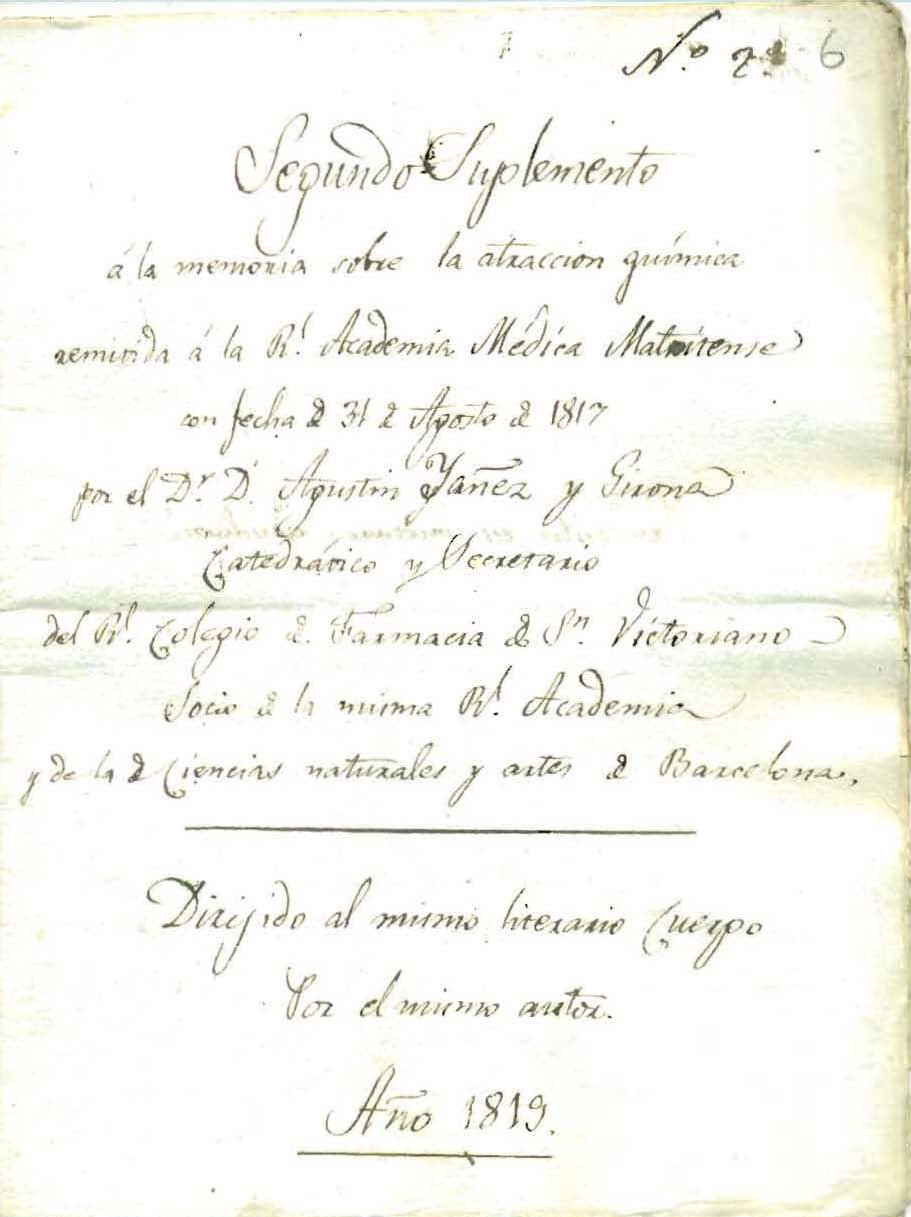 N.º 2º 6
Segundo Suplemento
á la memoria sobre la atraccion química
remitida á la Rl. Academia Médica Matritense
con fecha de 31 de Agosto de 1817
por el Dr. D. Agustin Yañez y Girona
Catedrático y Secretario
del Rl. Colegio de Farmacia de Sn. Victoriano
Socio de la misma Rl. Academia
y de la de Ciencias naturales y artes de Barcelona.
Dirijido al mismo literario Cuerpo
Por el mismo autor.
Año 1819.